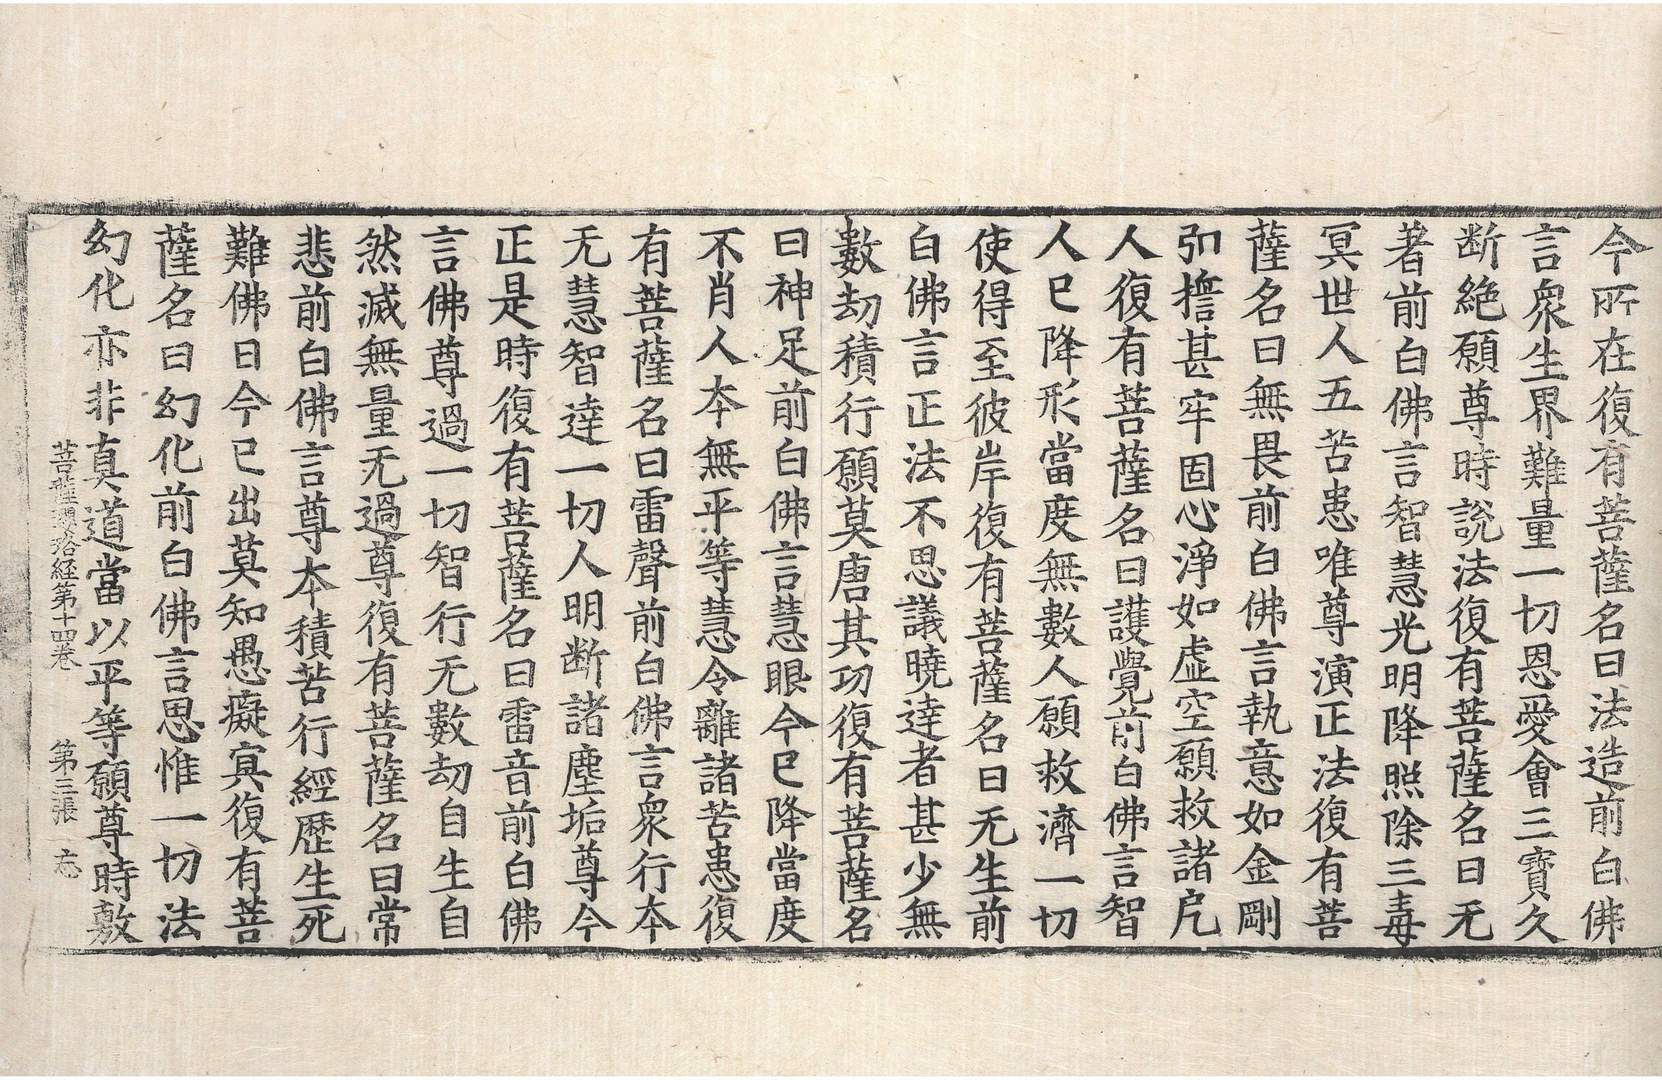 今所在復有菩薩名曰法造前白佛
言衆生界難量一切恩愛會三寶久
断絶願尊時說法復有菩薩名曰无
著前白佛言智慧光明降照除三毒
冥世人五苦患唯尊演正法復有菩
薩名曰無畏前白佛言執意如金剛
弘擔甚牢固心淨如虛空願救諸厄
人復有菩薩名曰護覺前白佛言智
人已降形當度無數人願救濟一切
使得至彼岸復有菩薩名曰无生前
白佛言正法不思議曉逹者甚少無
數劫積行願莫唐其功復有菩薩名
曰神足前白佛言慧眼今已降當度
不肖人夲無平等慧令離諸苦患復
有菩薩名曰雷聲前白佛言衆行夲
无慧智逹一切人明断諸塵垢尊今
正是時復有菩薩名曰雷音前白佛
言佛尊過一切智行无數劫自生自
然滅無量无過尊復有菩薩名曰常
悲前白佛言尊夲積苦行經歷生死
難佛日今已出莫知愚癡冥復有菩
薩名曰幻化前白佛言思惟一切法
幻化亦非真道當以平等願尊時敷
菩薩瓔珞経第十四卷 第三張